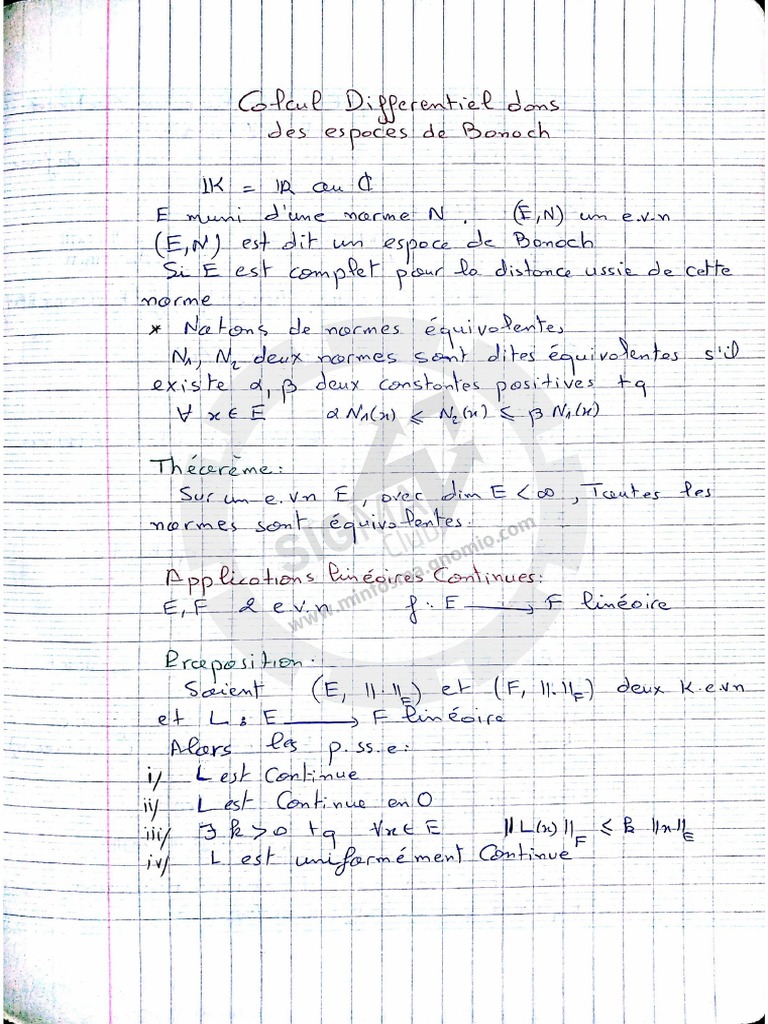 Calcul Differentiel dans
des espaces de Banach
IK = IR ou ₵
E muni d'une norme N. (E,N) un e.v.n
(E,N) est dit un espace de Banach
Si E est complet pour la distance ussie de cette
norme
* Notons de normes équivalentes
N₁, N₂ deux normes sont dites équivalentes s'il
existe α, β deux constantes positives tq
∀ x ∈ E α N₁(x) ⩽ N₂(x) ⩽ β N₁(x)
Théorème:
Sur un e.v.n E, avec dim E < ∞, Toutes les
normes sont équivalentes.
Applications linéaires Continues:
E, F 2 e.v.n f: E ⟶ F linéaire
Proposition.
Soient (E, ||.||_E) et (F, ||.||_F) deux K.e.vn
et L : E ⟶ F linéaire
Alors les p.ss.e:
i/ L est Continue
ii/ L est Continue en 0
iii/ ∃ k > 0 tq ∀x ∈ E ||L(x)||_F ⩽ k ||x||_E
iv/ L est uniformément Continue
SIGMA
Club
www.minfosraa.gnomio.com